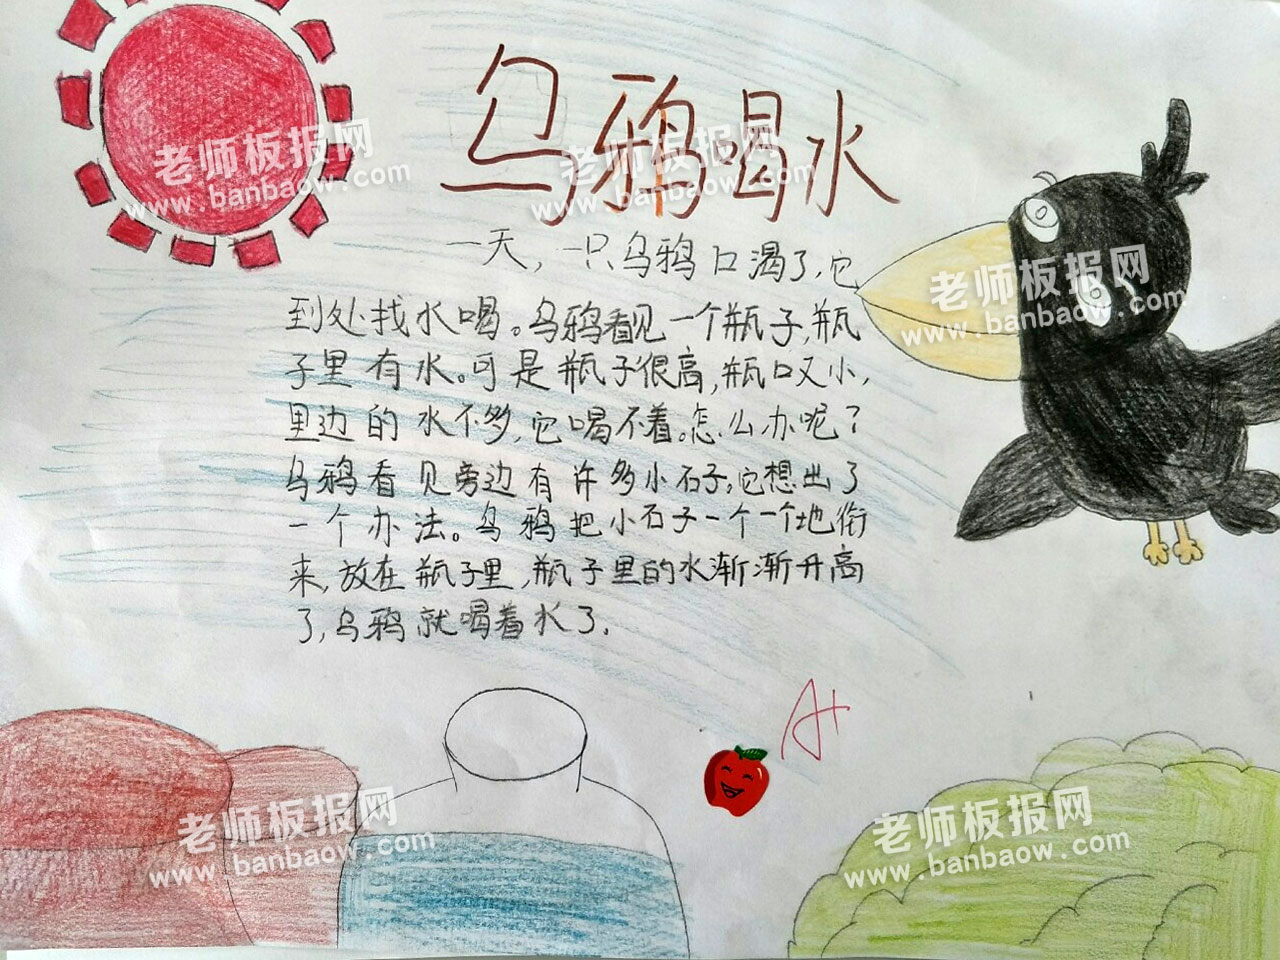 乌鸦喝水
一天，一只乌鸦口渴了，它
到处找水喝。乌鸦看见一个瓶子，瓶
子里有水。可是瓶子很高，瓶口又小，
里边的水不多，它喝不着。怎么办呢？
乌鸦看见旁边有许多小石子，它想出了
一个办法。乌鸦把小石子一个一个地衔
来，放在瓶子里，瓶子里的水渐渐升高
了，乌鸦就喝着水了．
A+
老师板报网
www.banbaow.com
老师板报网
www.banbaow.com
老师板报网
www.banbaow.com
老师板报网
www.banbaow.com
老师板报网
www.banbaow.com